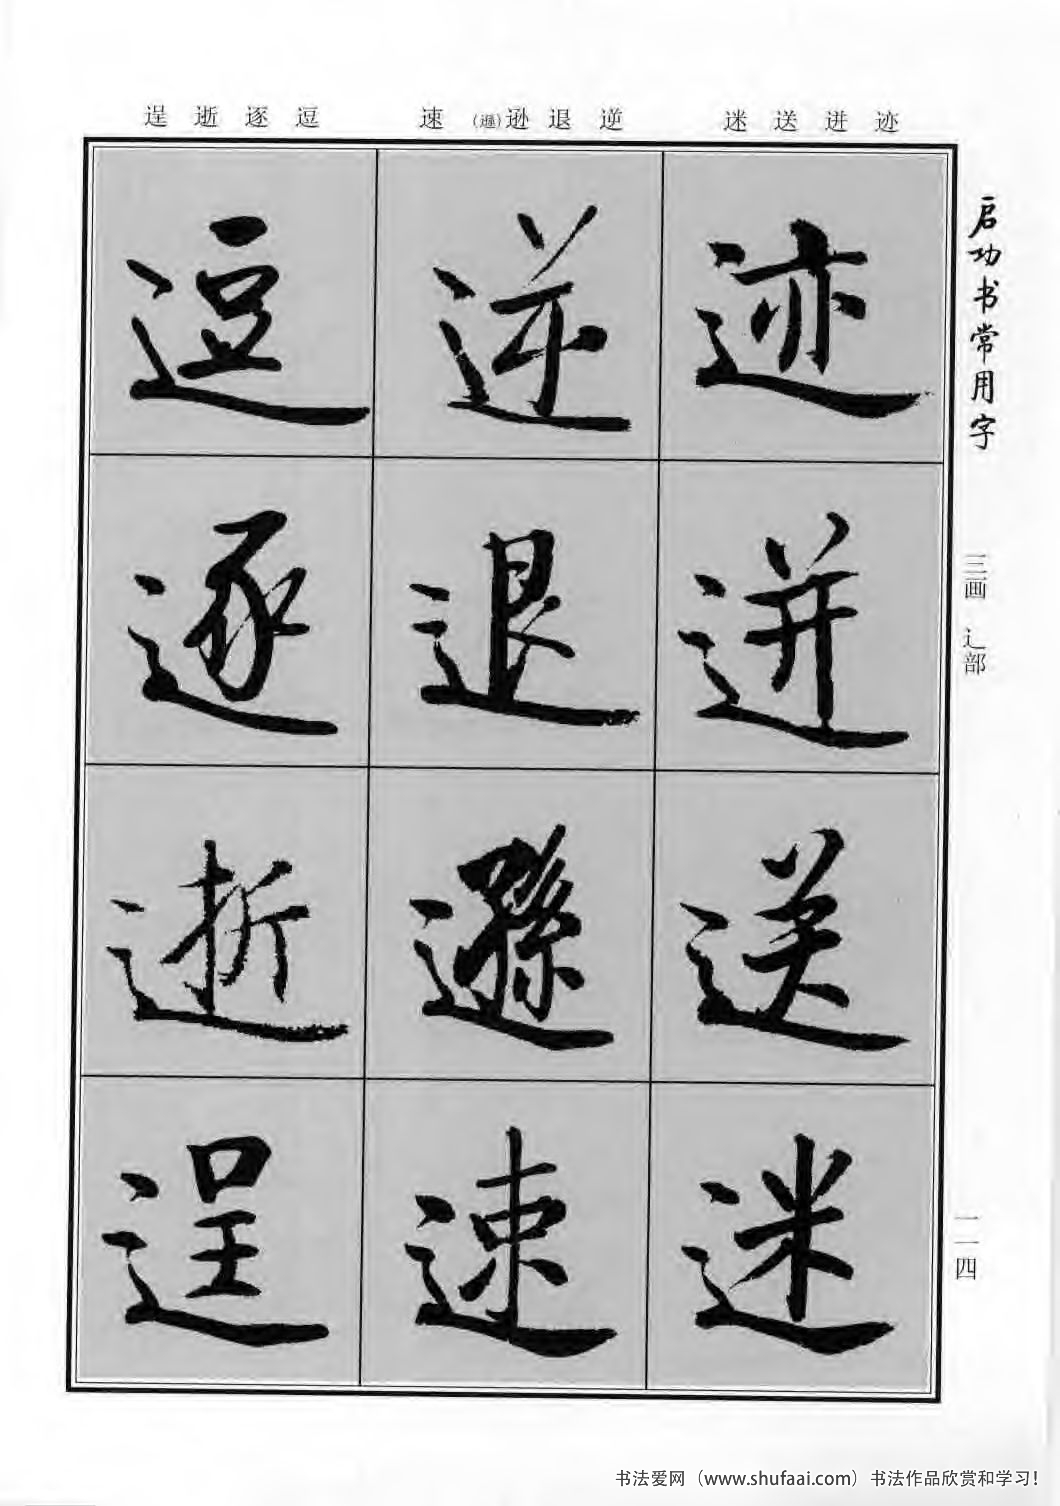 逞 逝 逐 逗
速 (遜)逊 退 逆
迷 送 迸 迹
启功书常用字
三画 辶部
一一四
迹
迸
送
迷
逆
退
遜
速
逗
逐
逝
逞
书法爱网（www.shufaai.com）书法作品欣赏和学习！